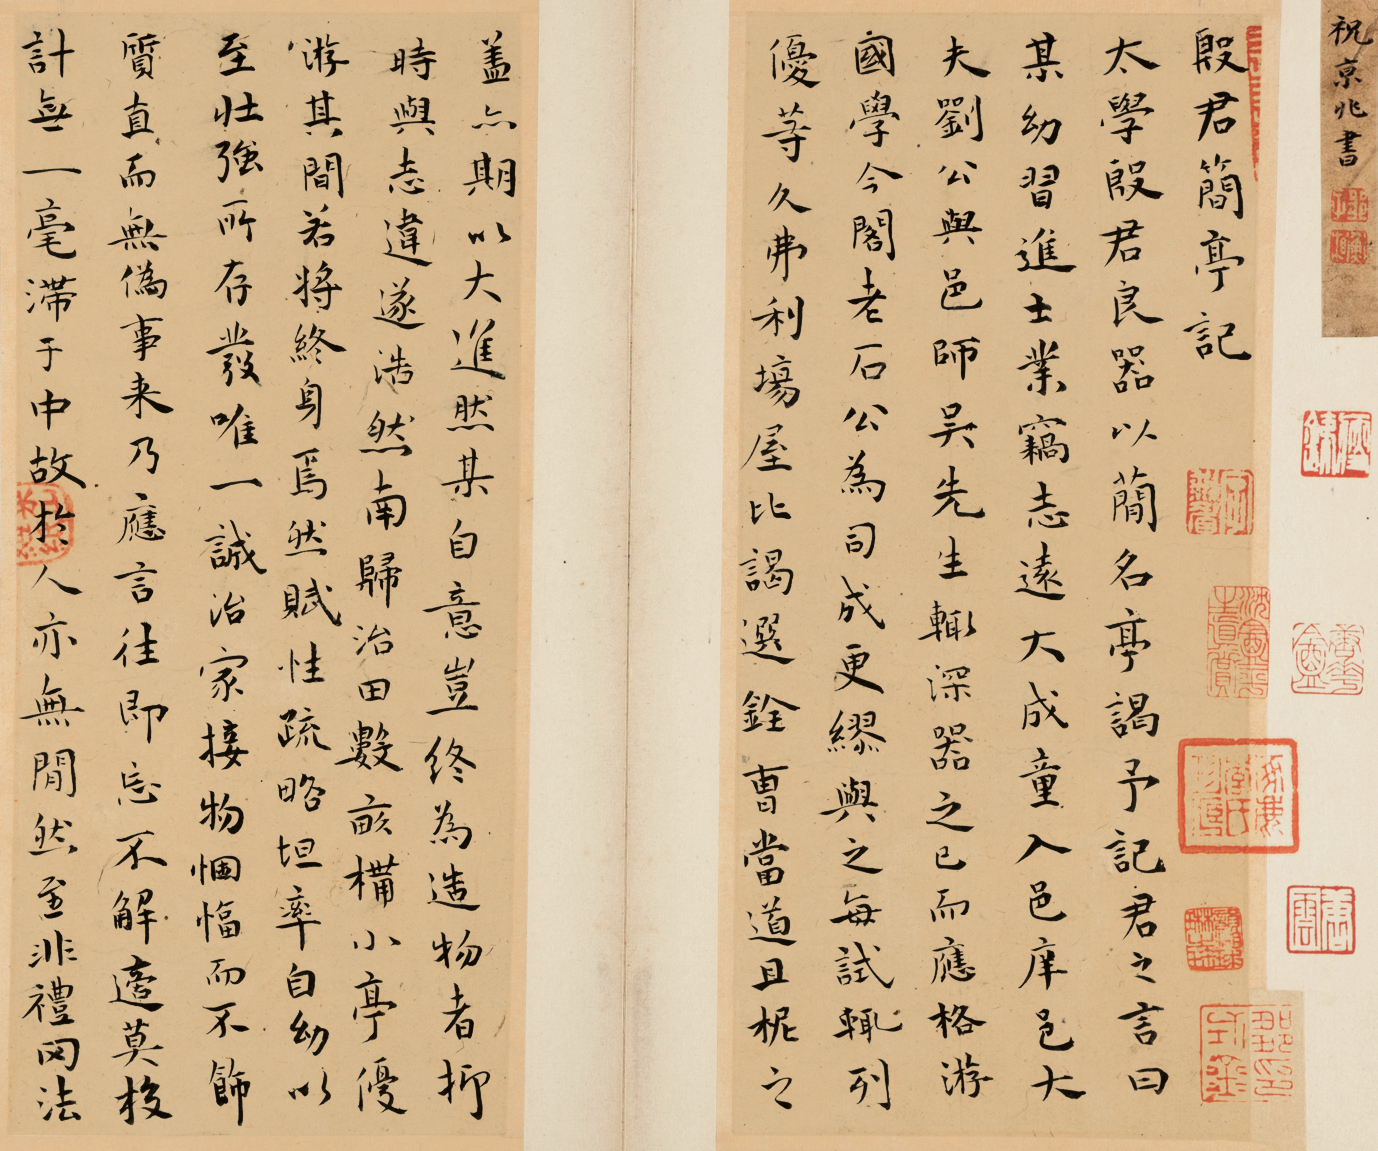 祝京兆書
殷君簡亭記
太學殷君良器以蕳名亭謁予記君之言曰
某幼習進士業竊志遠大成童入邑庠邑大
夫劉公與邑師吳先生輙深器之已而應格游
國學今閣老石公為司成更繆與之每試輙列
優等久弗利塲屋比謁選銓曹當道且柅之
盖亦期以大進然某自意豈終為造物者抑
時與志違遂浩然南歸治田數畝構小亭優
游其間若將終身焉然賦性疏略坦率自幼以
至壯強所存發唯一誠治家接物悃愊而不飾
質直而無偽事来乃應言往即忘不解適莫校
計無一毫滯于中故於人亦無間然至非禮罔法